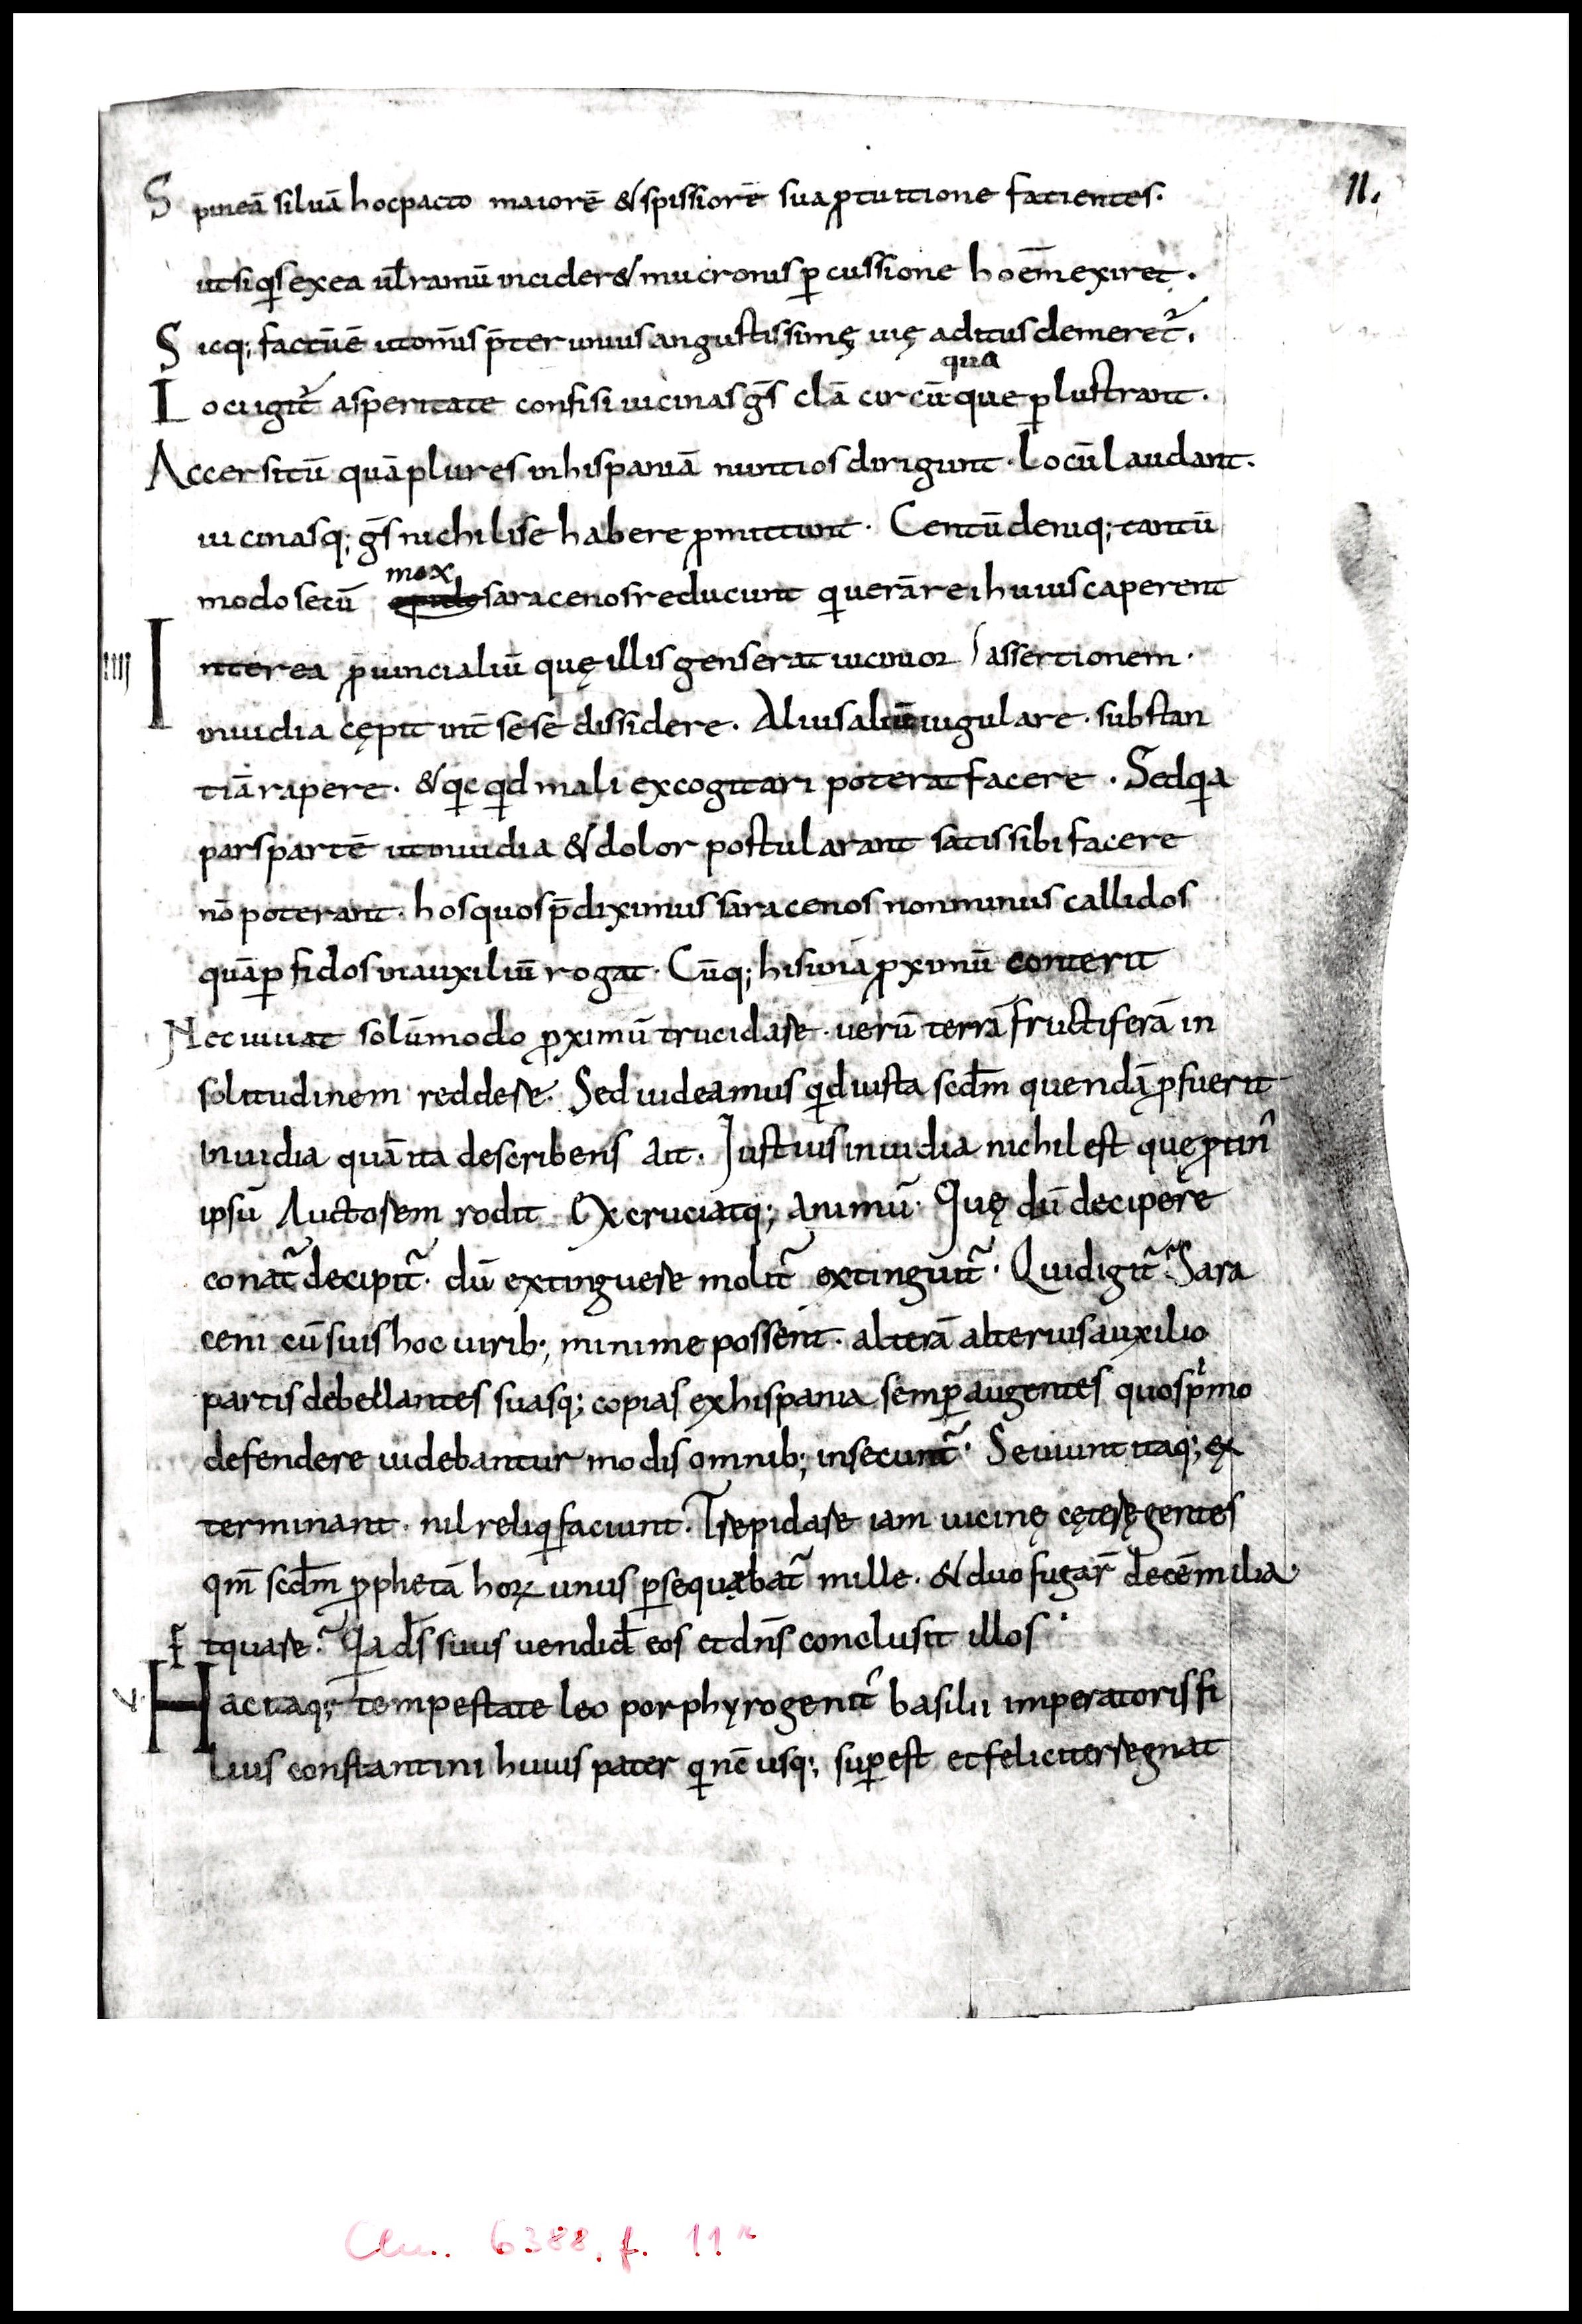 11.
Spineā siluā hocpacto maiorē & spissiorē sua ꝓtuitione facientes.
utsiq̇s exea ul̄ ramū incider& mucronis ꝑcussione hoēm exiret.
Sicq; factū ē utom̄s p̄ter unius angustissimę uię aditus demeret᷑.
qua
Loci igit᷑ asperitate confisi uicinas ḡs clā circūque ꝑlustrant.
Accersitū quā plures inhispaniā nuntios dirigunt. Locū laudant.
uicinasq; ḡs nichili se habere ꝓmittunt. Centū deniq; tantū
mox
modo secū saracenos reducunt qui uerā rei huius caperent
IIII Interea ꝓuincialiū quę illis gens erat uicinior / assertionem.
inuidia cępit int̄ sese dissidere. Alius aliū iugulare. substan
tiā rapere. & qic qid mali excogitari poterat facere. Sed qia
pars partē ut inuidia & dolor postularant satis sibi facere
nō poterant. hos quos p̄diximus saracenos non minus callidos
quā ꝑfidos in auxiliū rogat. Cūq; his unā ꝓximū conterit
Nec iuuat solūmodo ꝓximū trucidare. uerū terrā fructiferā in
solitudinem reddere. Sed uideamus qid iusta scd̄m quendā ꝓfuerit
inuidia quā ita describens ait. Iustius inuidia nichil est quę ꝓtin᷒
ipsū Auctorem rodit Excruciatq; animū. Quę dū decipere
conat᷑ decipit᷑. dū extinguere molit᷑ extinguit᷑. Quid igit᷑. Sara
ceni cū suis hoc uirib; minime possent. alterā alterius auxilio
partis debellantes suasq; copias ex hispania semꝑ augentes quos pͥmo
defendere uidebantur modis omnib; insecunt᷑. Seuiunt itaq; ex
terminant. nil reliqi faciunt. Trepidare iam uicinę cęterę gentes
qm̄ scd̄m ꝓphetā hoꝝ unus ꝑsequębat᷑ mille. & duo fugar̄ decē milia
Et quare? Qia d̄s suus uendid̄ eos et dn̄s conclusit illos.
V. Hac itaq; tempestate leo porphyrogenit᷒ basilii imperatoris fi
lius constantini huius pater qi nc̄ usq; suꝑest et feliciter regnat
Clm. 6388, f. 11r